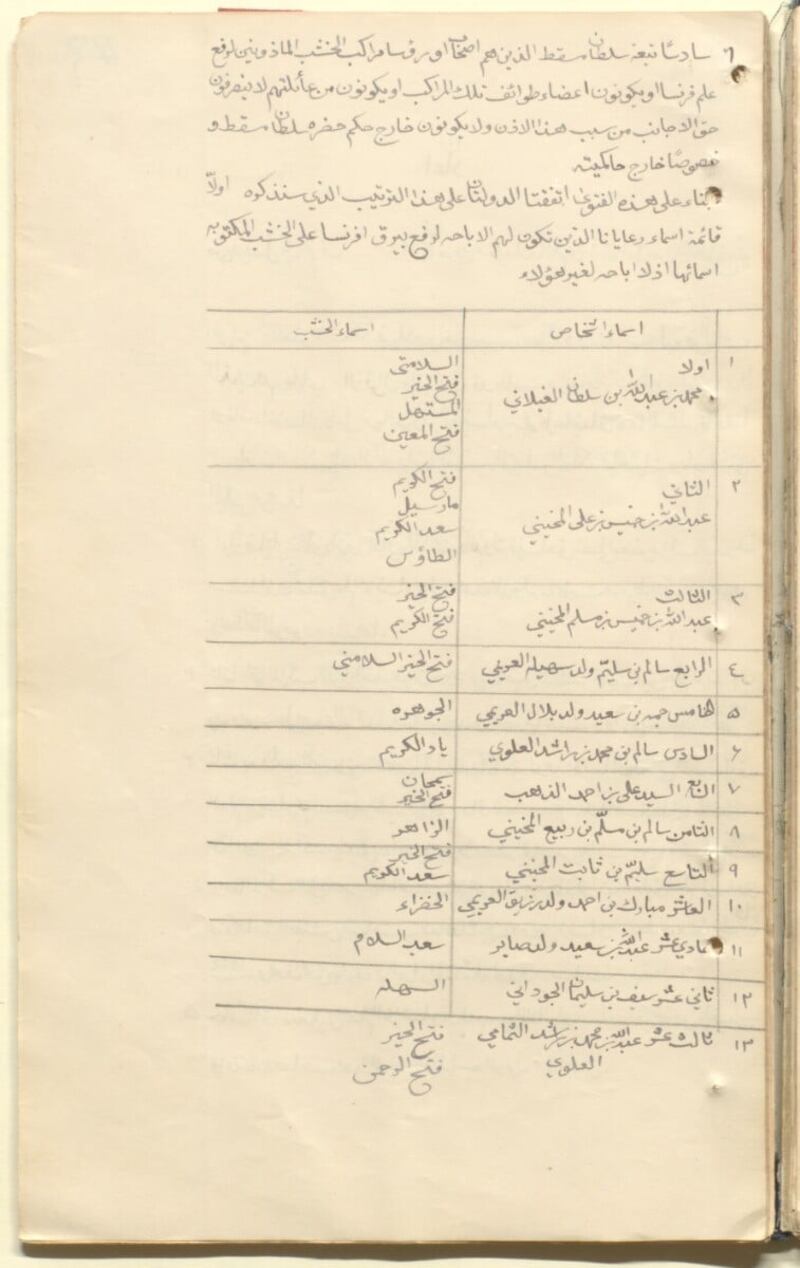 ٦ سادسًا تبعة سلطان مسقط الذين هم اصحاب او رؤسا مراكب الخشب الماذونين لرفع
علم فرنسا او يكونون اعضاء طوائف تلك المراكب او يكونون من عائلتهم لا يتصرفون
حق الاجانب من سبب هذا الاذن ولا يكونون خارج حكم حضرة سلطان مسقط و
خصوصًا خارج حاكميته
بناء على هذه الفتوى اتفقتا الدولتان على هذا الترتيب الذي سنذكره اولًا
قائمة اسماء رعايانا الذين تكون لهم الاباحه لرفع بيرق افرنسا على الخشب المكتوبه
اسمائها اذ لا اباحه لغير هؤلاء
اسماء اشخاص اسماء الخشب
١ اولا السلامتى
محمد بن عبد الله بن سلطان الغيلاني فتح الخير
المستهل
فتح المعين
٢ الثاني فتح الكريم
عبد الله بن خميس بن على المخيني مارسيل
سعد الكريم
الطاؤس
٣ الثالث فتح الخير
عبد الله بن خميس بن مسلم المخيني فتح الكريم
٤ الرابع سالم بن سليّم ولد سهيله العريمي فتح الخير السلامتي
٥ الخامس جمعه بن سعيد ولد بلال العريمي الجوهره
٦ السادس سالم بن محمد بن راشد العلوي ياد الكريم
٧ السابع السيد على بن احمد الذهب سمحان
فتح الخير
٨ الثامن سالم بن مسلّم بن ربيع المخيني الزاهر
٩ التاسع سليّم بن ثابت المخيني فتح الخير
سعد الكريم
١٠ العاشر مبارك بن احمد ولد زريق العريمي الخضراء
١١ حادي عشر عبد الله بن سعيد ولد صابر سعد السلام
١٢ ثاني عشر سيف بن سليمان الجوداني السهله
١٣ ثالث عشر عبد الله بن محمد بن راشد فتح الخير
العلوي فتح الرحمن